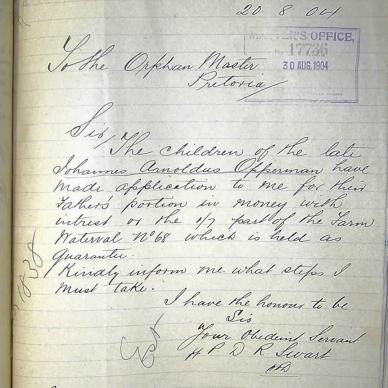 20 8 04
MASTER'S OFFICE,
17766
30 AUG. 1904
To the Orphan Master
Pretoria
Sir
The children of the late
Johannes Arnoldus Opperman have
made application to me for their
Father's portion in money with
intrest or the part of the Farm
Waterval No 68 which is held as
guarantee.
Kindly inform me what steps I
must take.
I have the honour to be
Sir
Your Obedient Servant
H P D R Swart
1838
Est